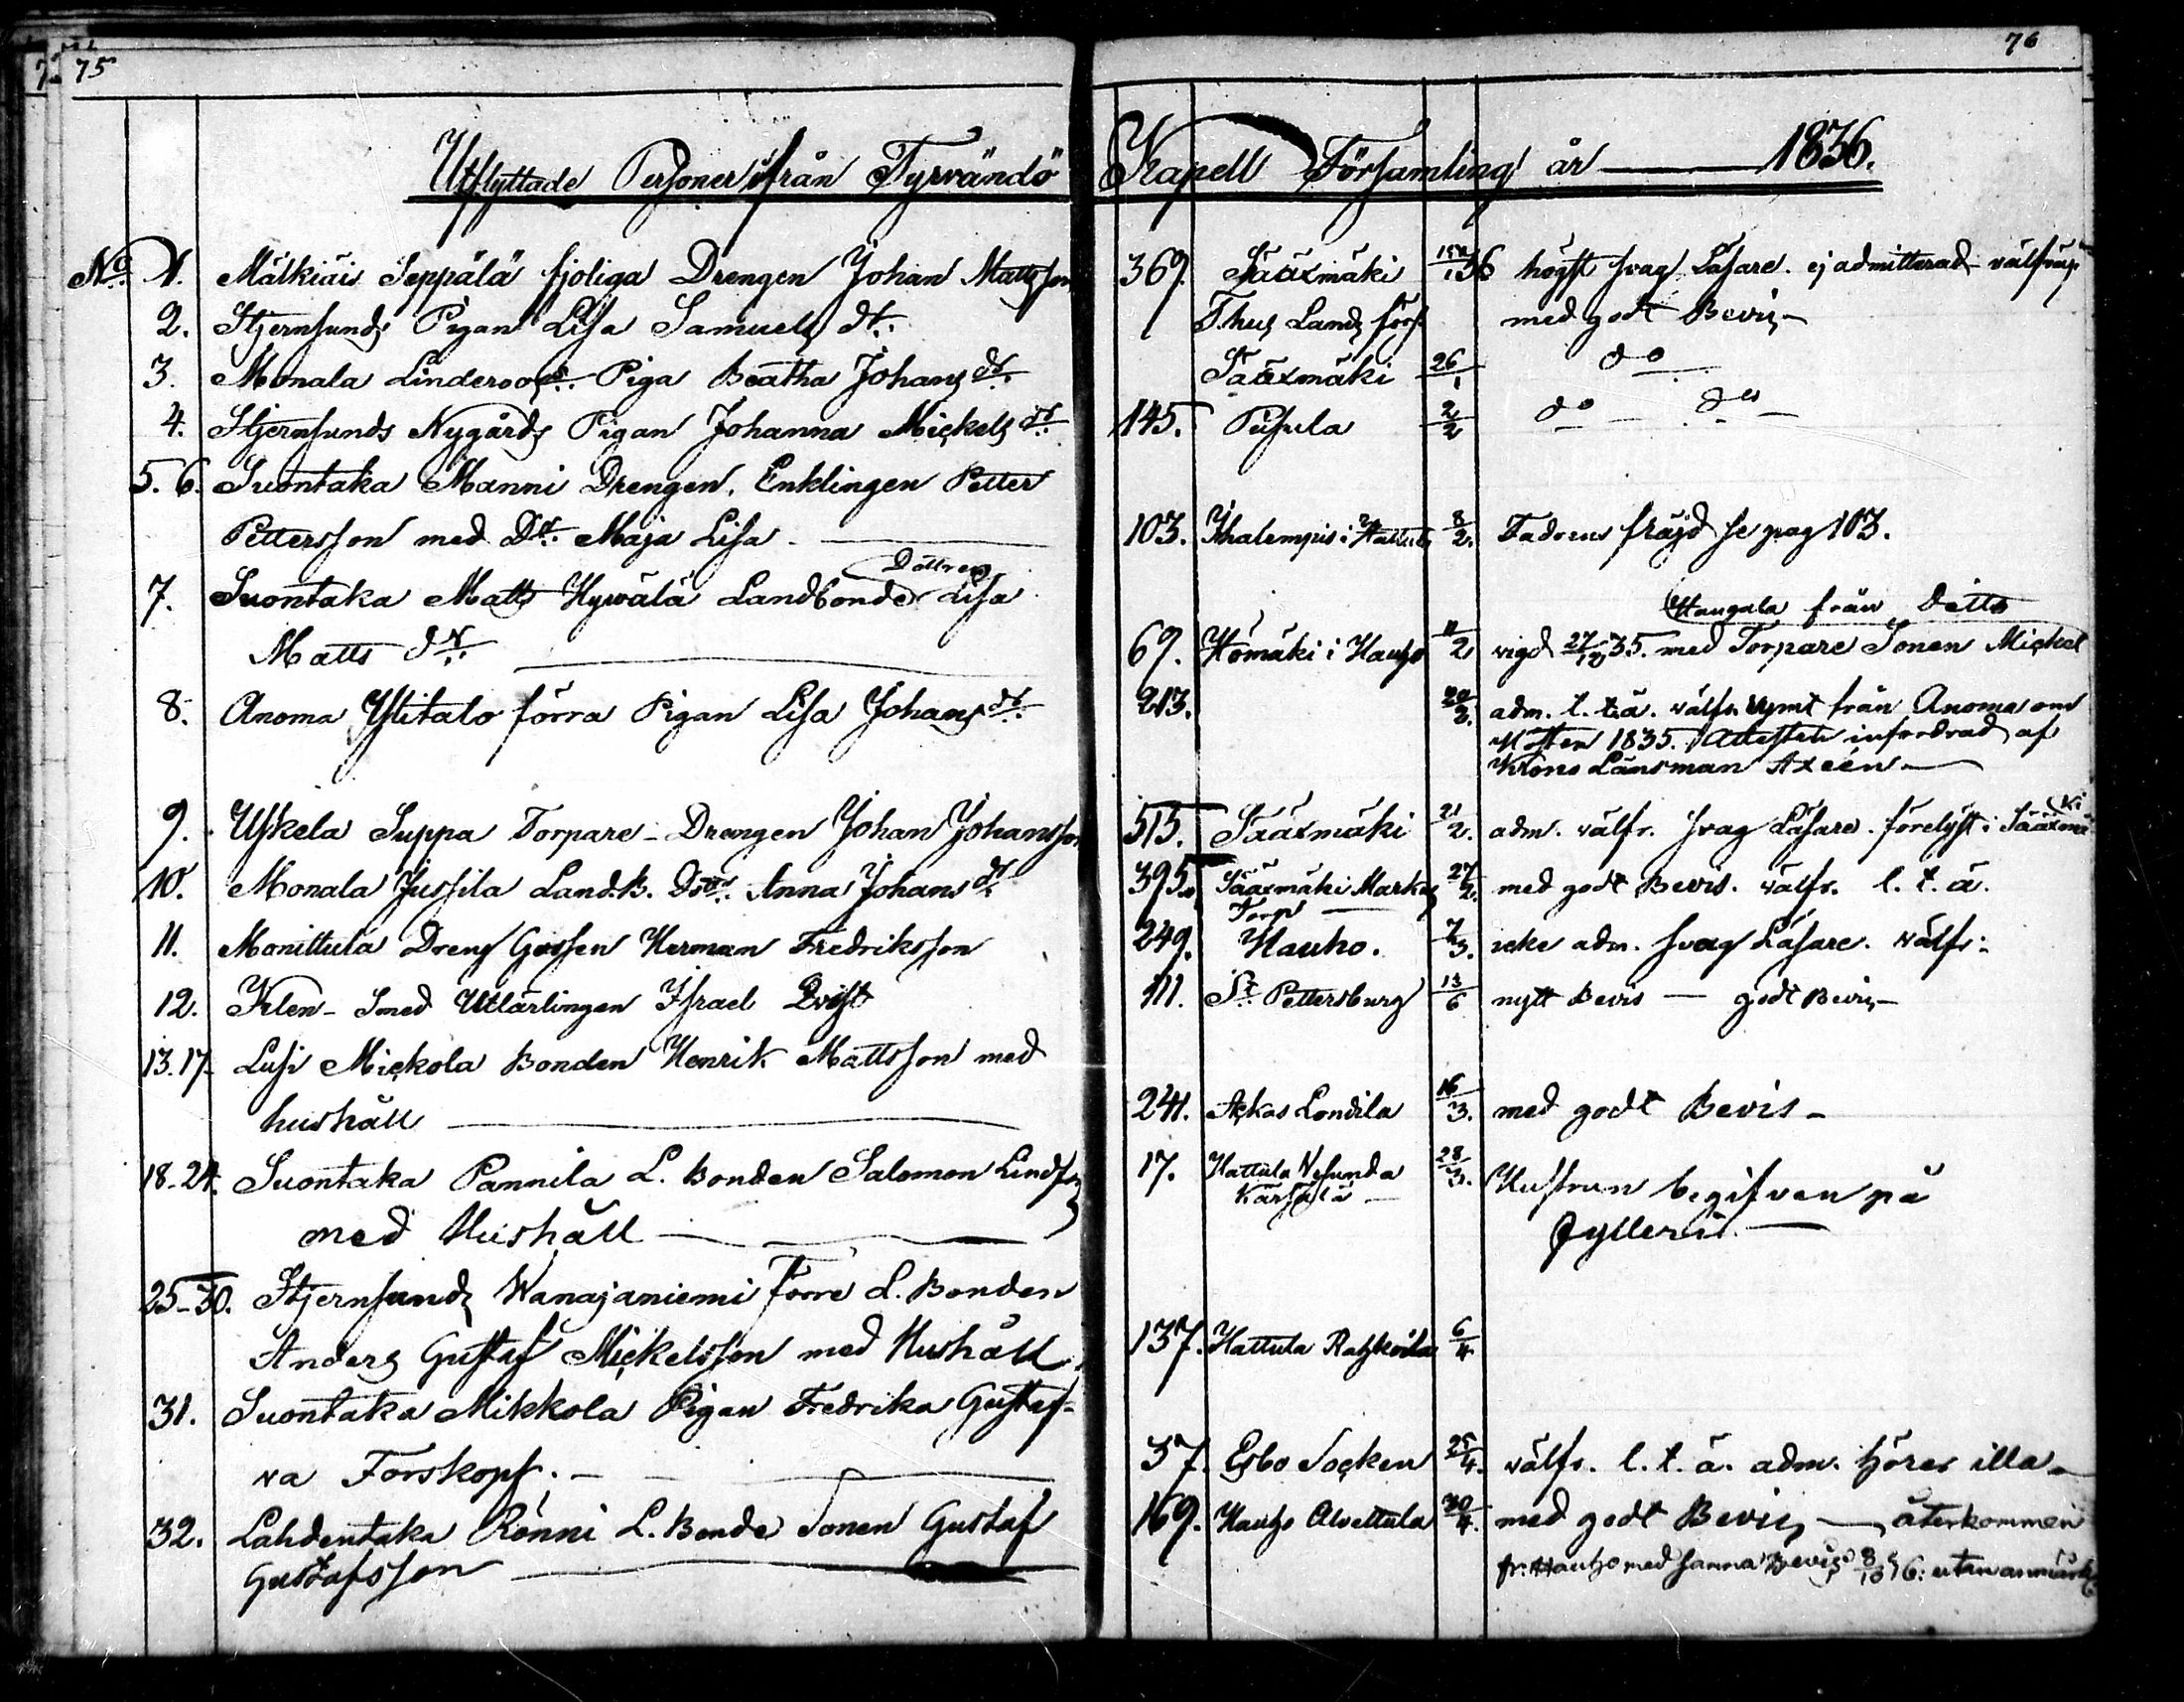 75
76
Utflyttade Personer ifrån Tyrvändö Kapell Församling år 1836.
No 1. Mälkiäis Seppälä fjoliga Drengen Johan Mattsson 369. Sääxmäki 36 högst svag Läsare. ej admitterad
2. Stjernsunds Pigan Lisa Samuels dr. Thus Lands förs med godt Bevis
3. Monala Linderoos Piga Beatha Johans dr. Sääxmäki 26/1 do
4. Stjernsunds Nygårds Pigan Johanna Mickels dr 145. Pusula 2/2 do do
5. 6. Suontaka Manni Drengen, Enklingen Petter
Pettersson med Dr. Maja Lisa 103. Ihalempis i Hattula 8/2. Fadrens fräjd se pag 103.
Dottren
Haugala från detta
7. Suontaka Matts Hyvälä Landbonde Lisa
Matts dr 69. Homäki i Hauho 11/2 vigd 27/12 35. med Torpare Sonen Mickel
8. Anoma Ylitalo förra Pigan Lisa Johans dr. 213. 20/2. adm. l. t. ä. välfr. rymt från Anoma om
Hösten 1835. Attesten infordrad af
Krono Länsman Axéen
9. Uskela Suppa Torpare-Drengen Johan Johansson 515. Sääxmäki 21/2. adm. välfr. svag Läsare. förelyst i Sääxmäki
10. Monala Jussila Land.B. Dottr. Anna Johans dr 395. Sääxmäki Markas 27/2. med godt Bevis. välfr. l. t. ä.
Torp
11. Monittula Dreng Gossen Herman Fredriksson 249. Hauho. 7/3. icke adm. svag Läsare. välfr.
12. Klen-Smed Utlärlingen Israel Qvist 111. St. Pettersburg 13/6 nytt Bevis — godt Bevis
13. 17. Lusi Mickola Bonden Henrik Mattsson med
hushåll 241. Ackas Londila 16/3. med godt Bevis
18-24. Suontaka Pannila L. Bonden Salomon 17. Hattula Nesunda 28/3. Hustrun begifven på
med Hushåll Kärsälä fylleri
25-30. Stjernsunds Wanajaniemi förre L. Bonden
Anders Gustaf Mickelsson med Hushåll 137. Hattula 6/4
31. Suontaka Mikkola Pigan Fredrika Gustaf-
va Forskopf. 37. Esbo Socken 25/4. välfr. l. t. ä. adm. hörer illa
32. Lahdentaka Rönni L. Bonde Sonen Gustaf 169. Hauho Alvettula 30/4. med godt Bevis — återkommen
Gustafsson fr. Hauho med samma Bevis 8/10 36: utan anmärk